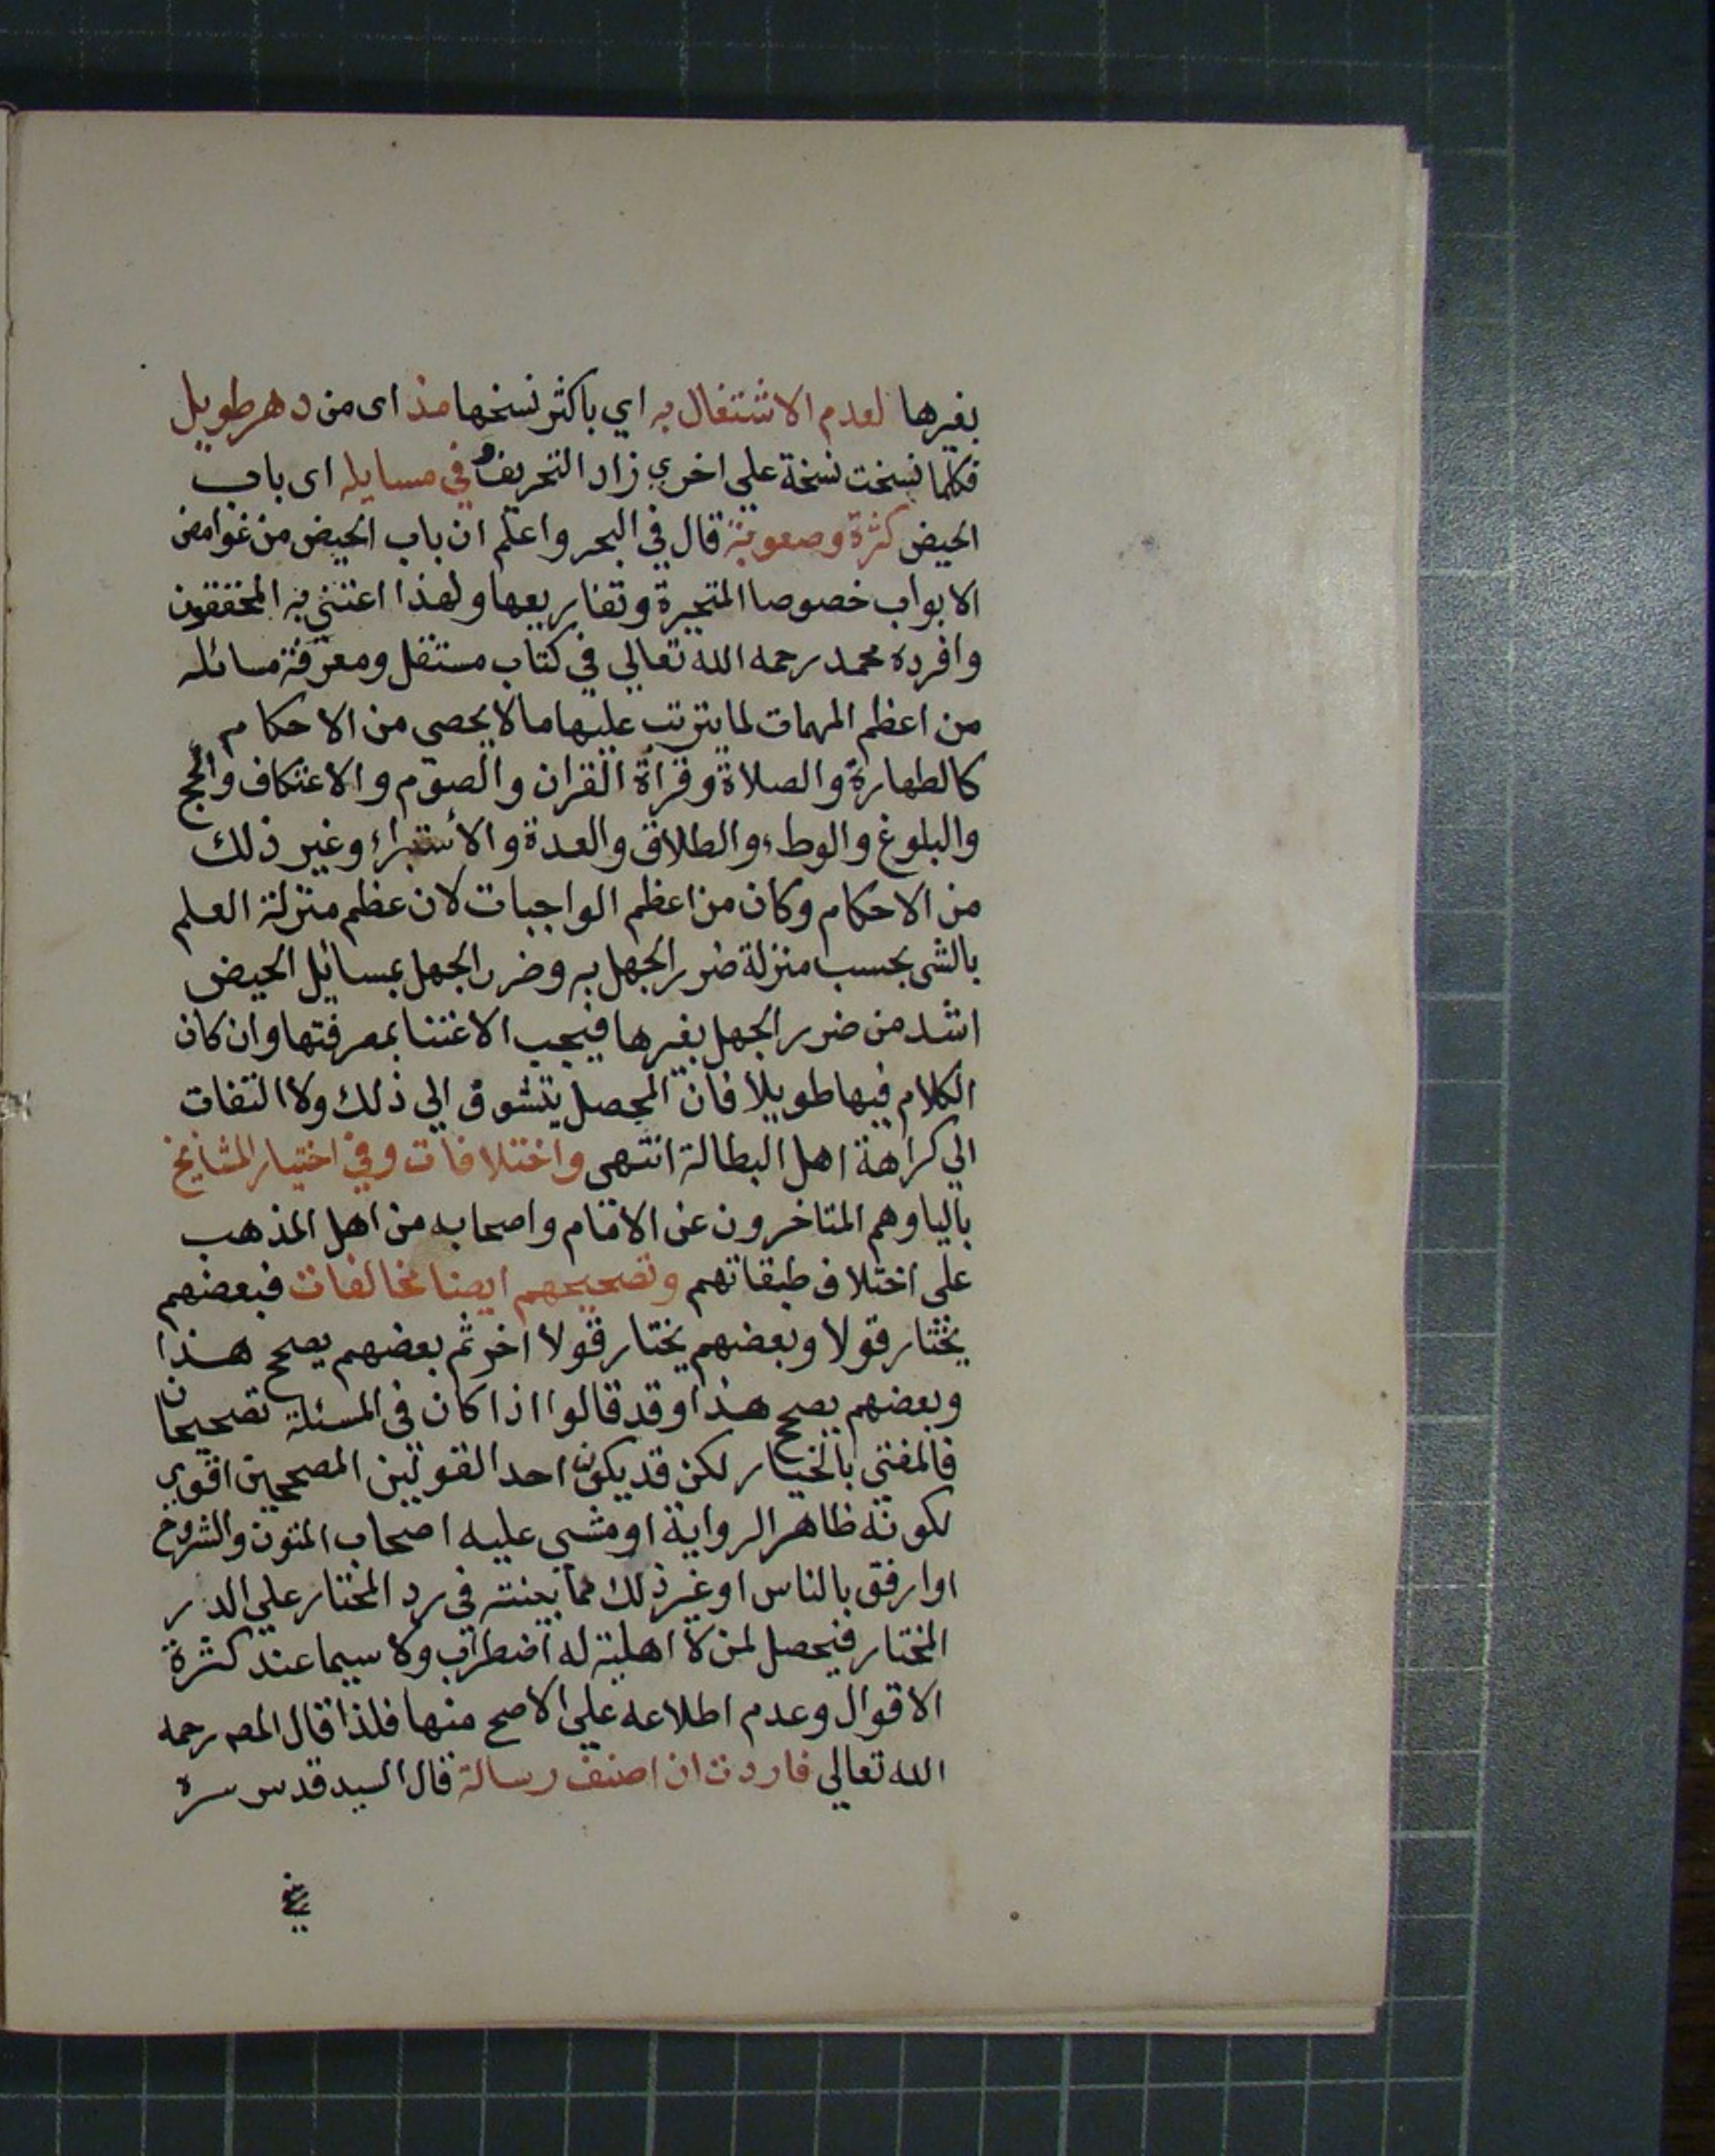 بغيرها لعدم الاشتغال به اي باكثر نسخها منذ اى من دهر طويل
فكلما نسخت نسخة على اخري زاد التحريف وفي مسايله اى باب
الحيض كثرة وصعوبة قال في البحر واعلم ان باب الحيض من غوامض
الابواب خصوصا المتحيرة وتفاريعها ولهذا اعتني به المحققون
وافرده محمد رحمه الله تعالي في كتاب مستقل ومعرفة مسائله
من اعظم المهمات لما يترتب عليها مالا يحصى من الاحكام
كالطهارة والصلاة وقراة القران والصوم والاعتكاف والحج
والبلوغ والوطء والطلاق والعدة والأستبراء وغير ذلك
من الاحكام وكان من اعظم الواجبات لان عظم منزلة العلم
بالشى بحسب منزلة ضرر الجهل به وضرر الجهل بمسائل الحيض
اشد من ضرر الجهل بغيرها فيجب الاعتنا بمعرفتها وان كان
الكلام فيها طويلا فان المحصل يتشوق الي ذلك ولا التفات
الي كراهة اهل البطالة انتهى واختلافات وفي اختيار المشايخ
باليا وهم المتاخرون عن الامام واصحابه من اهل المذهب
على اختلاف طبقاتهم وتصحيحهم ايضا مخالفات فبعضهم
يختار قولا وبعضهم يختار قولا اخر ثم بعضهم يصحح هذا
وبعضهم يصحح هذا وقد قالوا اذا كان فى المسئلة تصحيحان
فالمفتي بالخيار لكن قد يكون احد القولين المصححين اقوي
لكونه ظاهر الرواية او مشى عليه اصحاب المتون والشروح
او ارفق بالناس او غير ذلك مما بينته في رد المختار علي الدر
المختار فيحصل لمن لا اهلية له اضطراب ولا سيما عند كثرة
الاقوال وعدم اطلاعه علي الاصح منها فلذا قال المصـ رحمه
الله تعالي فاردت ان اصنف رسالة قال السيد قدس سره
في